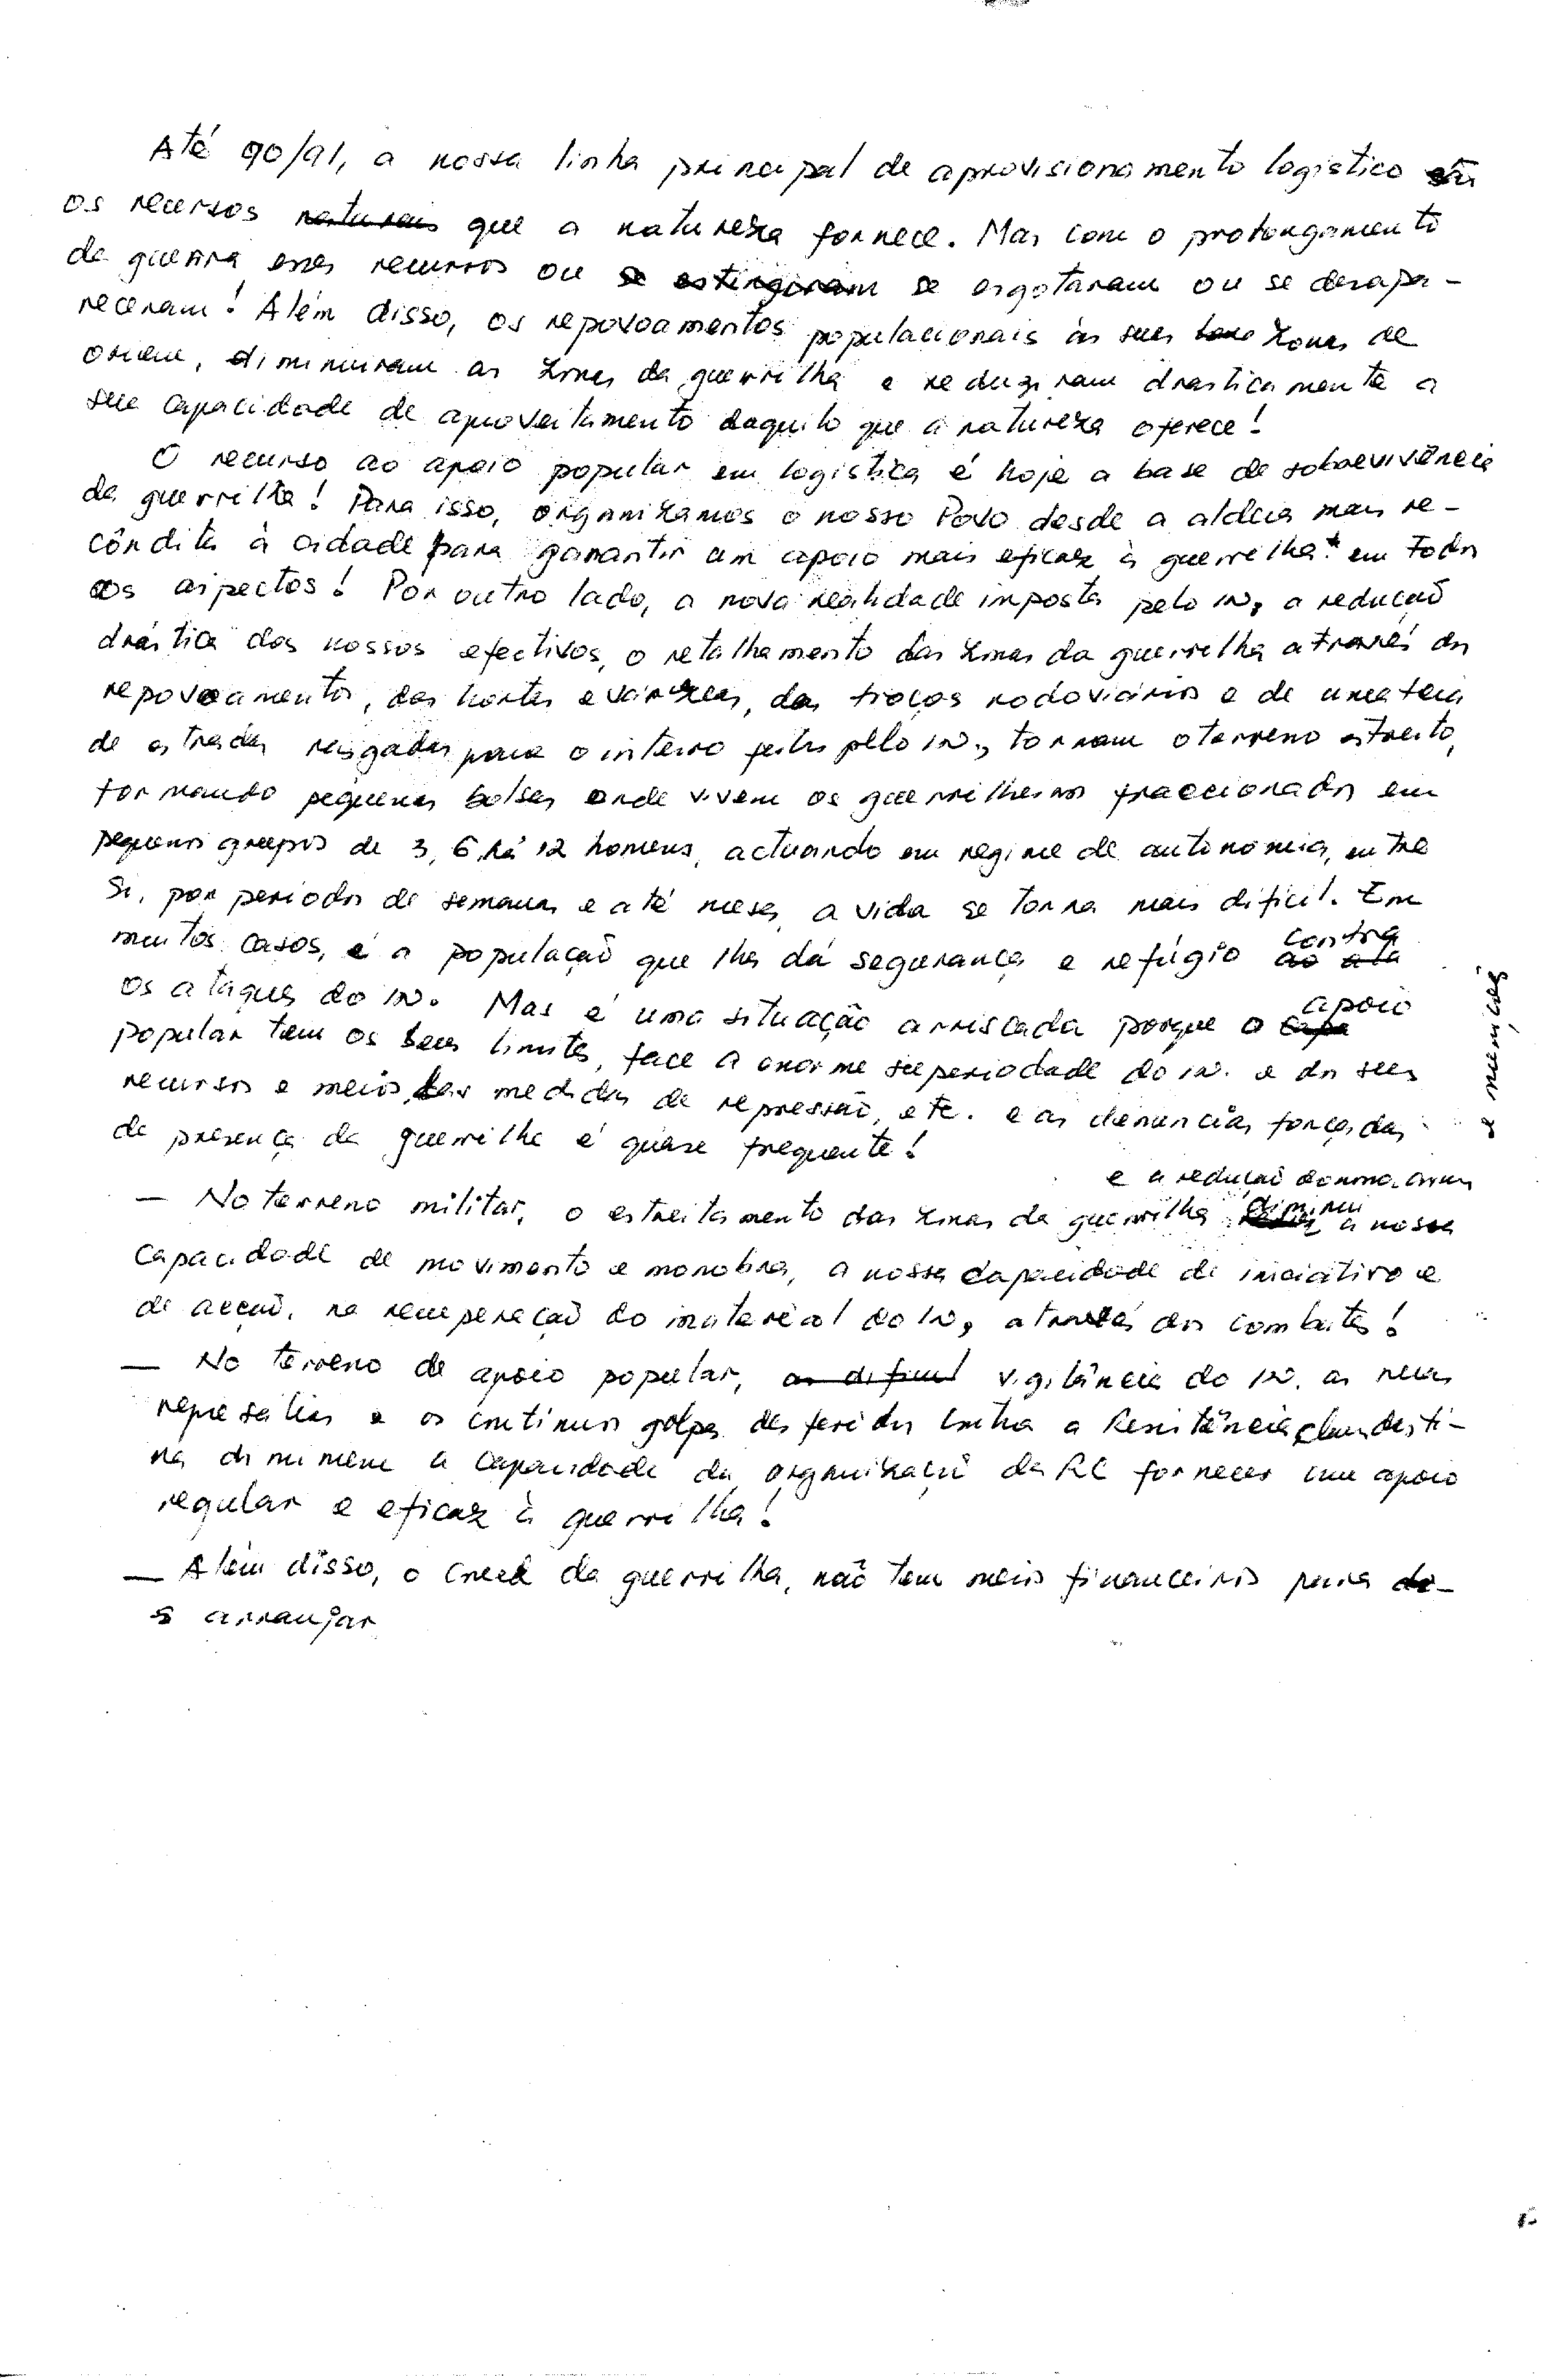 Até 90/91, a nossa linha principal de aprovisionamento logístico
os recursos naturais que a natureza fornece. Mas com o prolongamento
da guerra esses recursos ou se estingiram se esgotaram ou se desapa-
receram! Além disso, os repovoamentos populacionais às suas zonas de
diminuiram as zonas da guerrilha e reduziram drasticamente a
sua capacidade de aproveitamento daquilo que a natureza oferece!
O recurso ao apoio popular em logística é hoje a base de sobrevivência
da guerrilha! Para isso, organizamos o nosso Povo desde a aldeia mais re-
côndita à cidade para garantir um apoio mais eficaz à guerrilha em todos
os aspectos! Por outro lado, a nova realidade imposta pelo IN, a redução
drástica dos nossos efectivos, o retalhamento das zonas da guerrilha através dos
repovoamentos, das hortas e várzeas, dos troços rodoviários e de uma teia
de estradas rasgadas para o interro feitas pelo IN., tornam o terreno estreito,
formando pequenas bolsas onde vivem os guerrilheiros fraccionados em
pequenos grupos de 3, 6, 12 homens, actuando em regime de autonomia, entre
si, por períodos de semanas e até meses, a vida se torna mais difícil. Em
muitos casos, é a população que lhes dá segurança e refúgio ao ata contra
os ataques do IN. Mas é uma situação arriscada porque o capa apoio
popular tem os seus limites, face a enorme superiodade do IN. e dos seus
recursos e meios, medidas de repressão, etc. e as denuncias forçadas
e nuniças
da presença da guerrilha é quase frequente!
e a redução
— No terreno militar, o estreitamento das zonas da guerrilha diminui a nossa
capacidade de movimento e manobra, a nossa capacidade de iniciativa e
de acção, na recuperação do material do IN, através dos combates!
— No terreno de apoio popular, vigilância do IN. as suas
represálias e os contínuos golpes desferidos contra a Resistência clandesti-
na diminuem a capacidade da organização da RC fornecer um apoio
regular e eficaz à guerrilha!
— Além disso, o da guerrilha, não tem meios financeiros para
arranjar